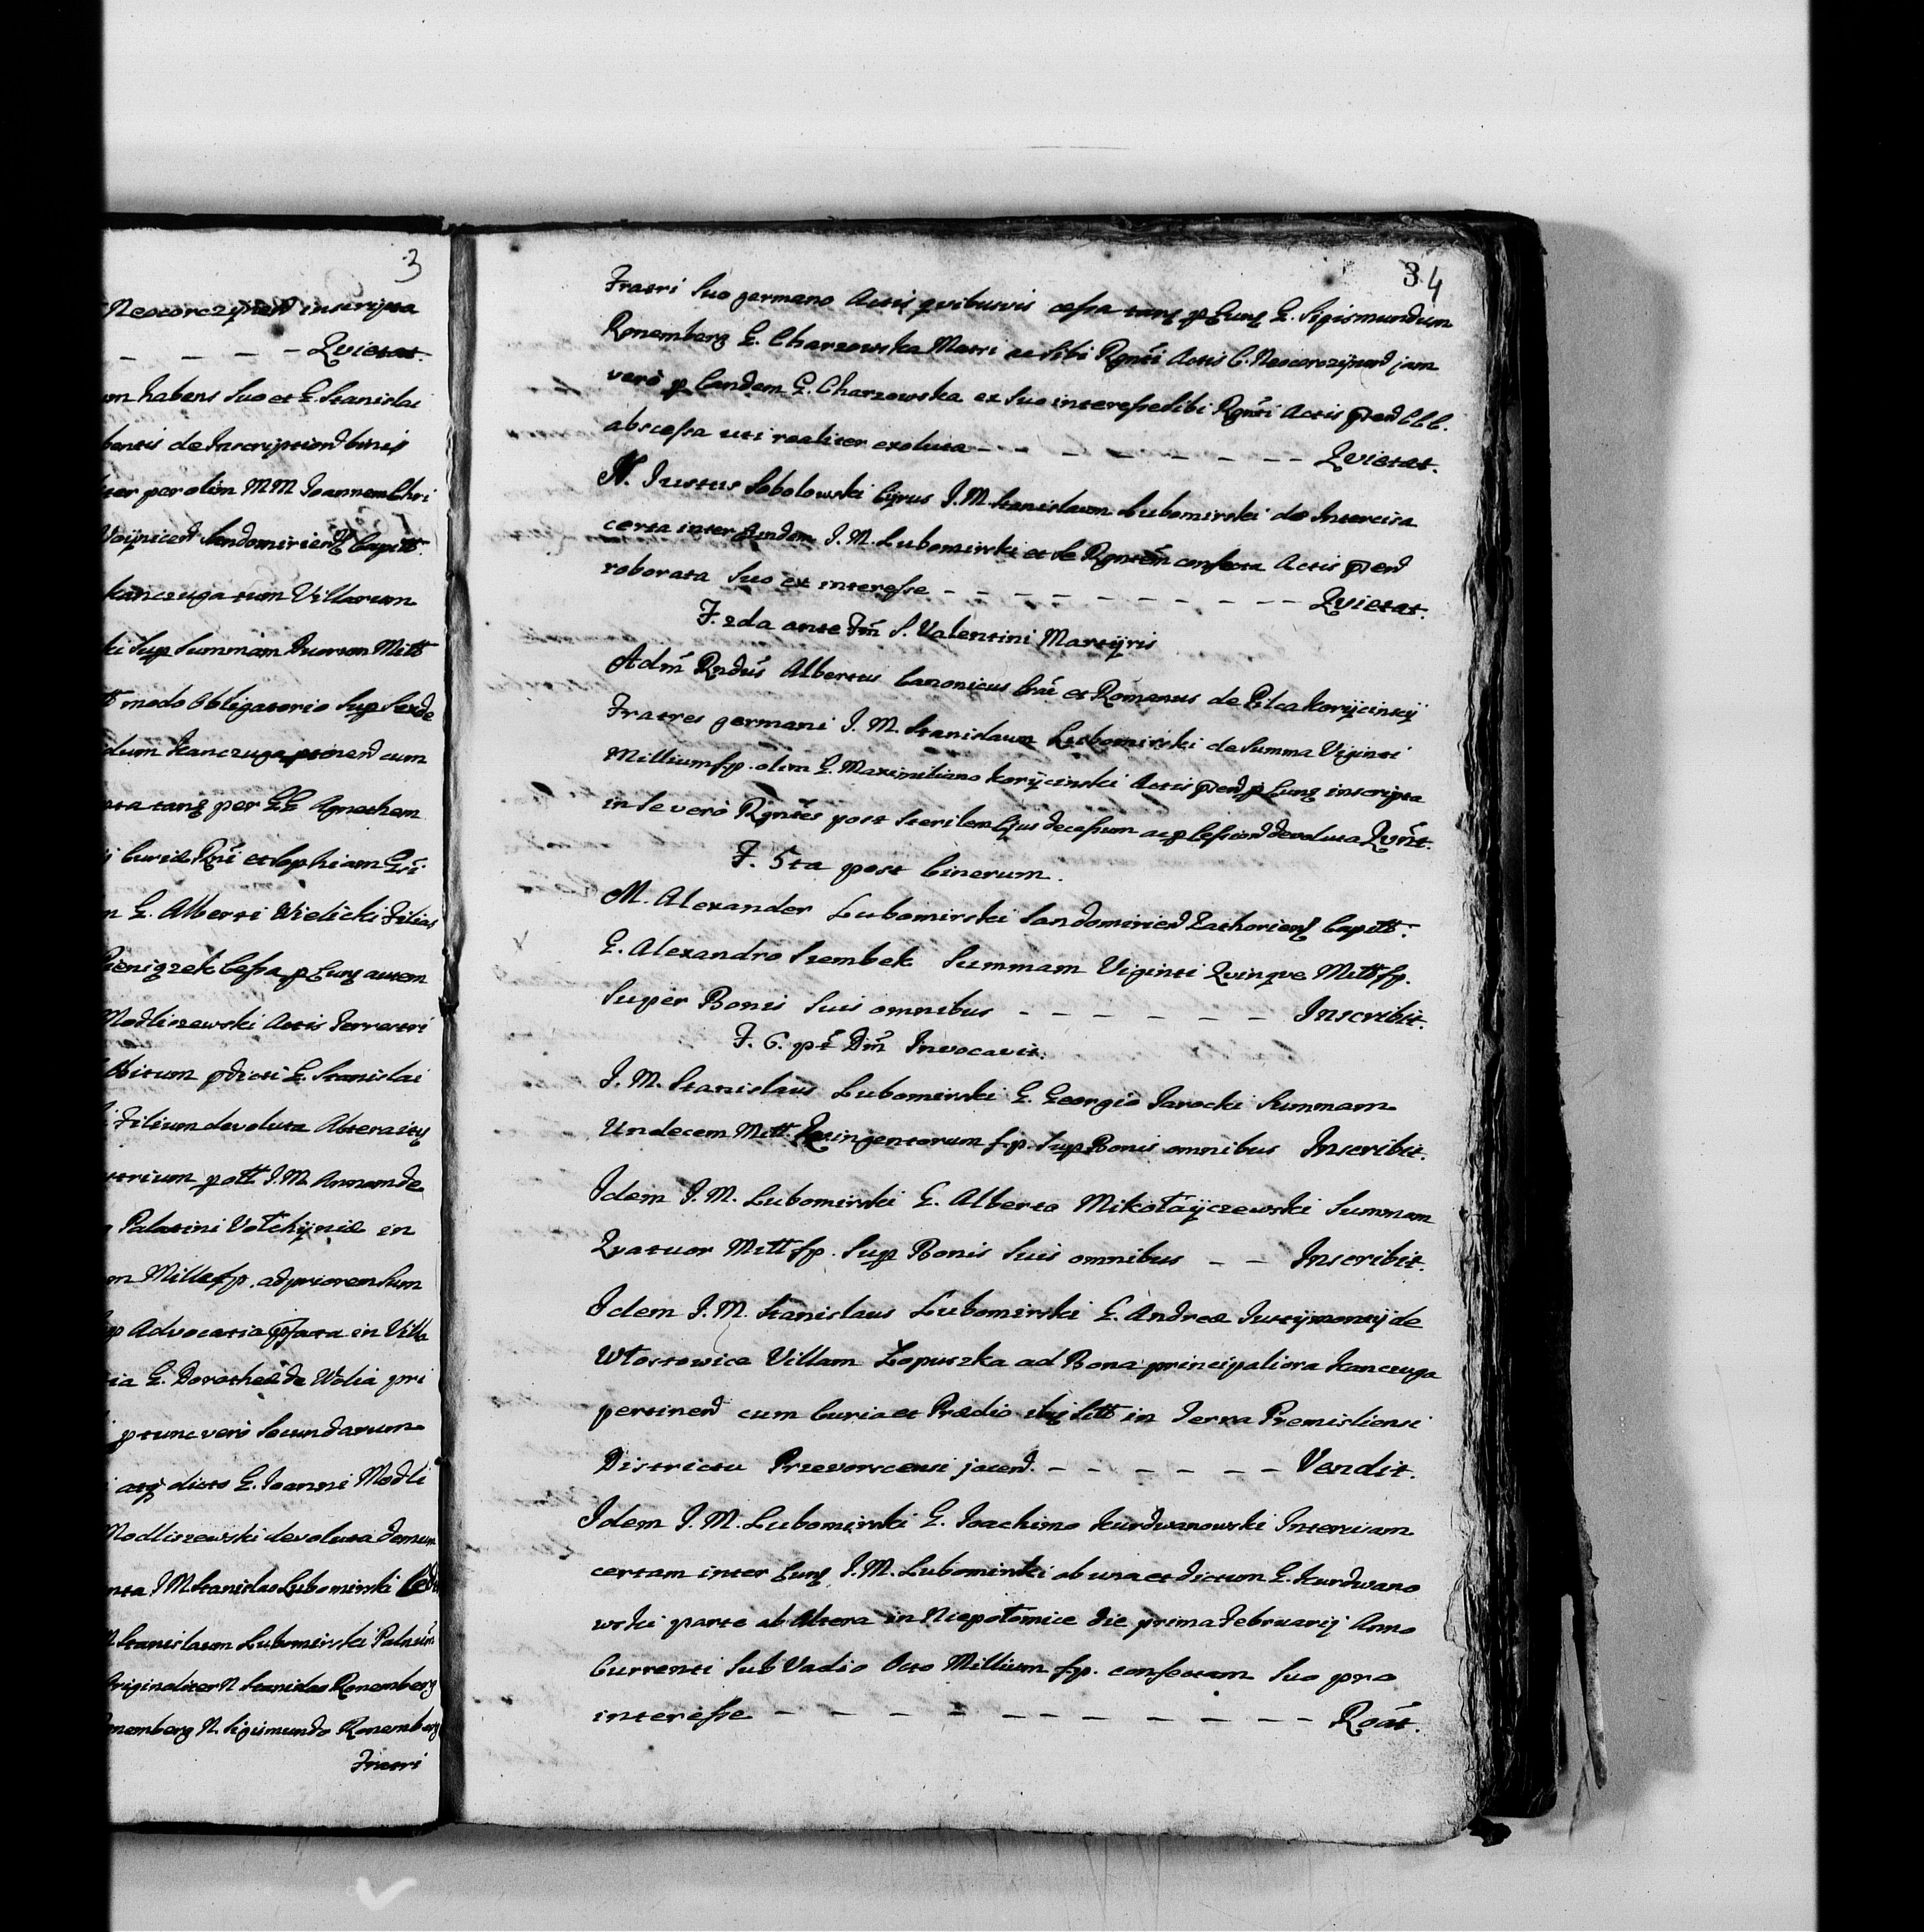 3
Neocorczynen inscripta
Qvietat.
habens Suo et G. Stanislai
de Inscription binis
per olim M M Joannem Chri
Sandomirien Capitt.
Kanczuga tum Villarum
Sup Summam Duorum Mill
modo Obligatorio Sup Sexde
Kanczuga ptinen cum
tanq per GG Agnethem
Curiæ et Sophiam
G. Alberti Wielicki Filias
Cessa p Eunq autem
Modliszewski Actis Terrestri
pdicti G. Stanislai
Filium devoluta Altera itq
pott J. M. Annam de
Palatini Volhyniæ in
Mille fp. ad priorem Sum
Advocatia pfata in Villa
G. Dorotheæ de Wolia pri
ptunc vero Secundarum
atq dicto G. Joanni Modli
Modliszewski devoluta demum
J M Stanislao Lubomirski
Stanislaum Lubomirski
Originaliter N Stanislao Ronemberg
N. Sigismundo Ronemberg
Fratri
34
Fratri Suo germano Actis qvibusvis cessa tanq p Eunq G. Sigismundum
Ronemberg G. Charzowska Matri ac Sibi Rgnti Actis C. Neocorczynen jam
verò p Eandem G. Charzowska ex Suo interesse Sibi Rgnti Actis pen CCC.
abscessa uti realiter exoluta - - - - - - - - Qvietat.
N. Justus Sobolowski Cyrus J. M. Stanislaum Lubomirski de Intercisa
certa inter Eundem J. M. Lubomirski et Se Rgntem confecta Actis pen
roborata Suo ex interesse - - - - - - - - - - - Qvietat.
F. 2da ante Fm S. Valentini Martyris
Adm Rndus Albertus Canonicus Crac et Romanus de Pilca Korycinscy
Fratres germani J. M. Stanislaum Lubomirski de Summa Viginti
Millium fp. olim G. Maximiliano Korycinski Actis pen p Eunq inscripta
in Se verò Rgntes post Sterilem Ejus decessum ac p Cession devoluta Qvnt.
F. 5ta post Cinerum.
M. Alexander Lubomirski Sandomirien Zathorienq Capitt.
G. Alexandro Szembek Summam Viginti Qvinqve Mill fp.
Super Bonis Suis omnibus - - - - - - Inscribit.
F. 6. pt Dm Invocavit.
J. M. Stanislaus Lubomirski G. Georgio Jarocki Summam
Undecem Mill. Qvingentorum fp. Sup Bonis omnibus Inscribit.
Idem J. M. Lubomirski G. Alberto Mikołayczewski Summam
Qvatuor Mill fp. Sup Bonis Suis omnibus - - Inscribit.
Idem J. M. Stanislaus Lubomirski G. Andreæ de
Włostowice Villam Łopuszka ad Bona principaliora Kanczuga
pertinen cum Curia et Prædio ibiq Sitt in Terra Premisliensi
Districtu Przevorscensi jacen. - - - - - - Vendit.
Idem J. M. Lubomirski G. Joachimo Kurdwanowski Intercisam
certam inter Eunq J. M. Lubomirski ab una et dictum G. Kurdwano
wski parte ab Altera in Niepołomice die prima Februarij Anno
Currenti Sub Vadio Octo Millium fp. confectam Suo pro
interesse - - - - - - - - - - - Roat.